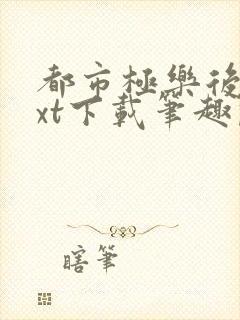 都市極樂後
xt下載筆趣
瞎筆